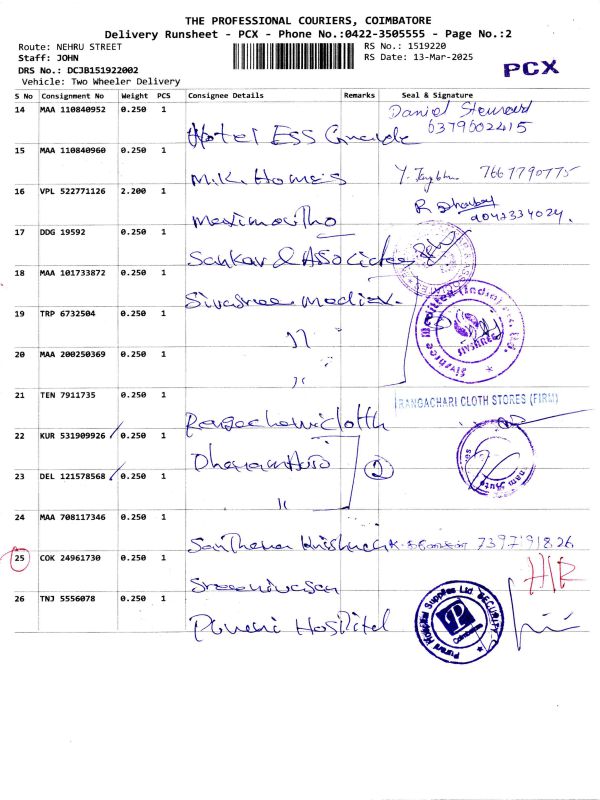 THE PROFESSIONAL COURIERS, COIMBATORE
Delivery Runsheet - PCX - Phone No.:0422-3505555 - Page No.:2
Route: NEHRU STREET
RS No.: 1519220
Staff: JOHN
RS Date: 13-Mar-2025
DRS No.: DCJB151922002
PCX
Vehicle: Two Wheeler Delivery
S No Consignment No Weight PCS Consignee Details Remarks Seal & Signature
14 MAA 110840952 0.250 1
Daniel Steward
6379602415
Hotel Ess Grande
15 MAA 110840960 0.250 1
M.K. Homes
7667790775
16 VPL 522771126 2.200 1
R
9047334024.
17 DDG 19592 0.250 1
Sankar & Associates
18 MAA 101733872 0.250 1
Sivasree
19 TRP 6732504 0.250 1
Sivshree Meditren (India) Pvt. Ltd.
SIVSHREE
20 MAA 200250369 0.250 1
21 TEN 7911735 0.250 1
RANGACHARI CLOTH STORES (FIRM)
Rangachari cloth
22 KUR 531909926 0.250 1
2
23 DEL 121578568 0.250 1
24 MAA 708117346 0.250 1
7397191826
25 COK 24961730 0.250 1
H/R
Sreenivasan
26 TNJ 5556078 0.250 1
Purani Hospital Supplies Ltd SECURITY
Coimbatore
Purani Hospital